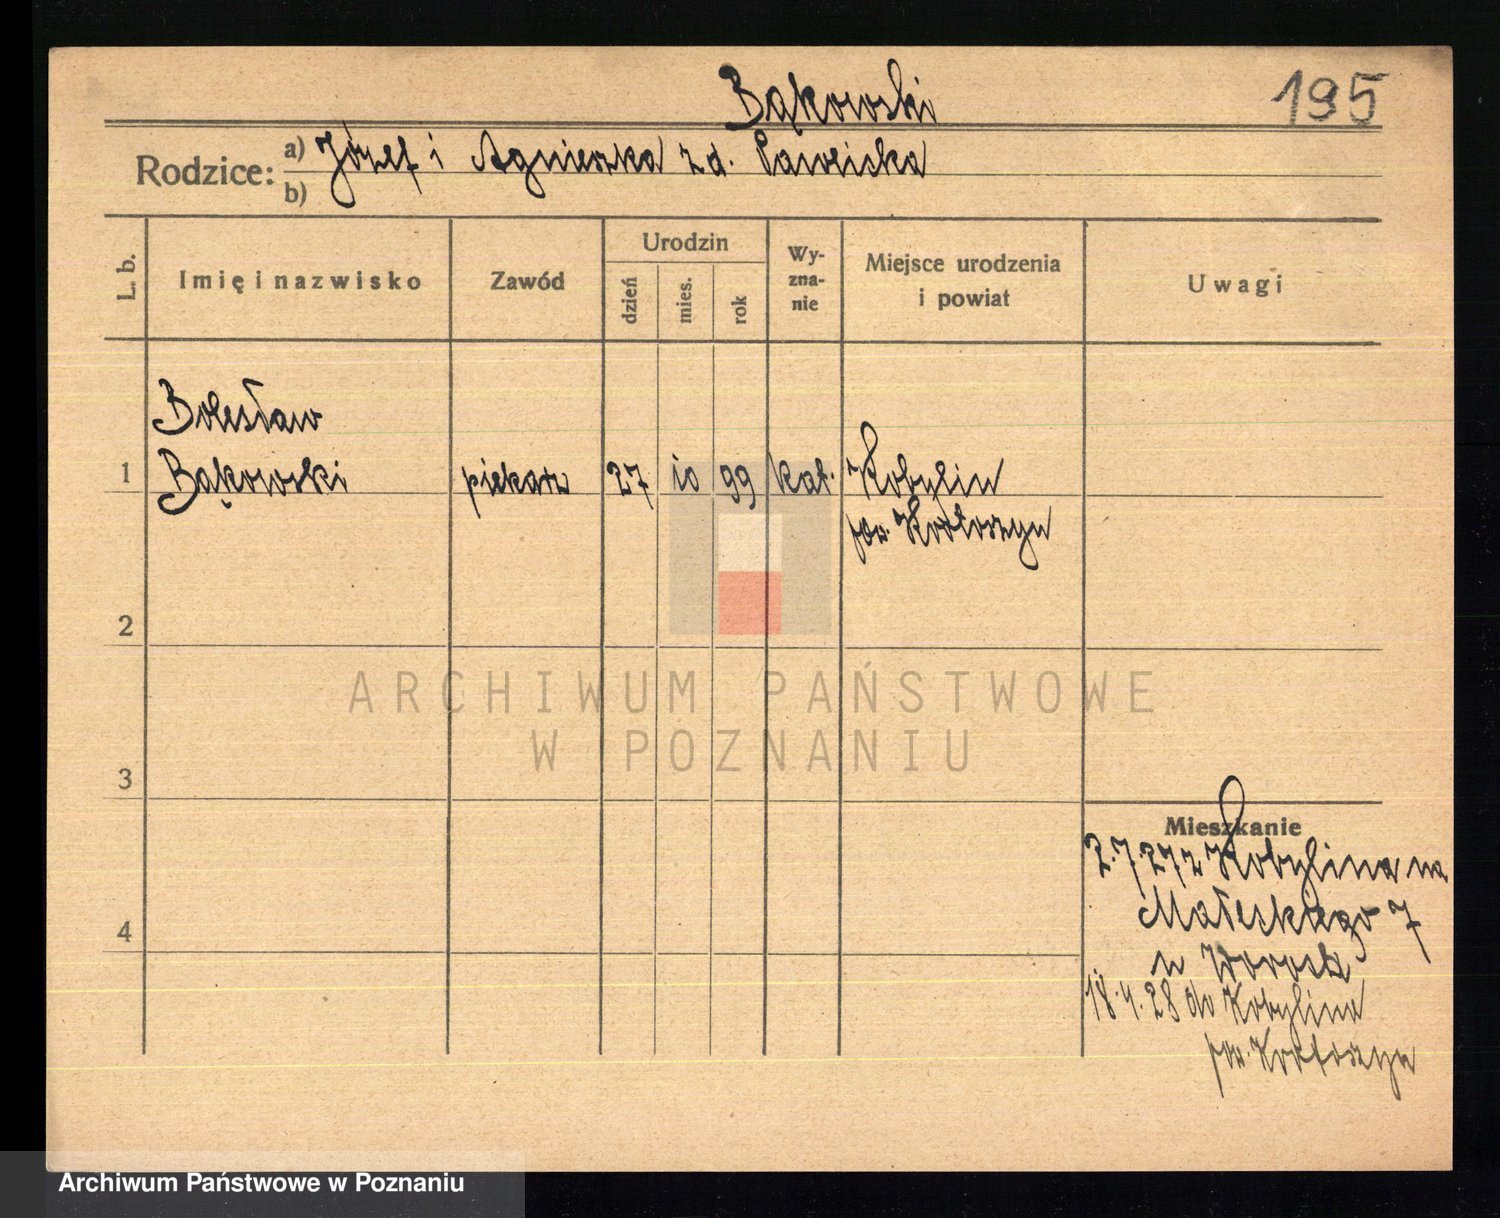 Bąkowski
195
Rodzice: a) Józef i Agnieszka zd. Pawlicka
b)
L. b.
Imię i nazwisko
Zawód
Urodzin
dzień
mies.
rok
Wy-
zna-
nie
Miejsce urodzenia
i powiat
Uwagi
Bolesław
1 Bąkowski piekarz 27 10 99 kat. Kobylin
pow. Krotoszyn
2
ARCHIWUM PAŃSTWOWE
W POZNANIU
3
Mieszkanie
2.7 27 z Kobylina na
Małeckiego 7
u
4
18.4.28 do Kobylina
pow. Krotoszyn
Archiwum Państwowe w Poznaniu